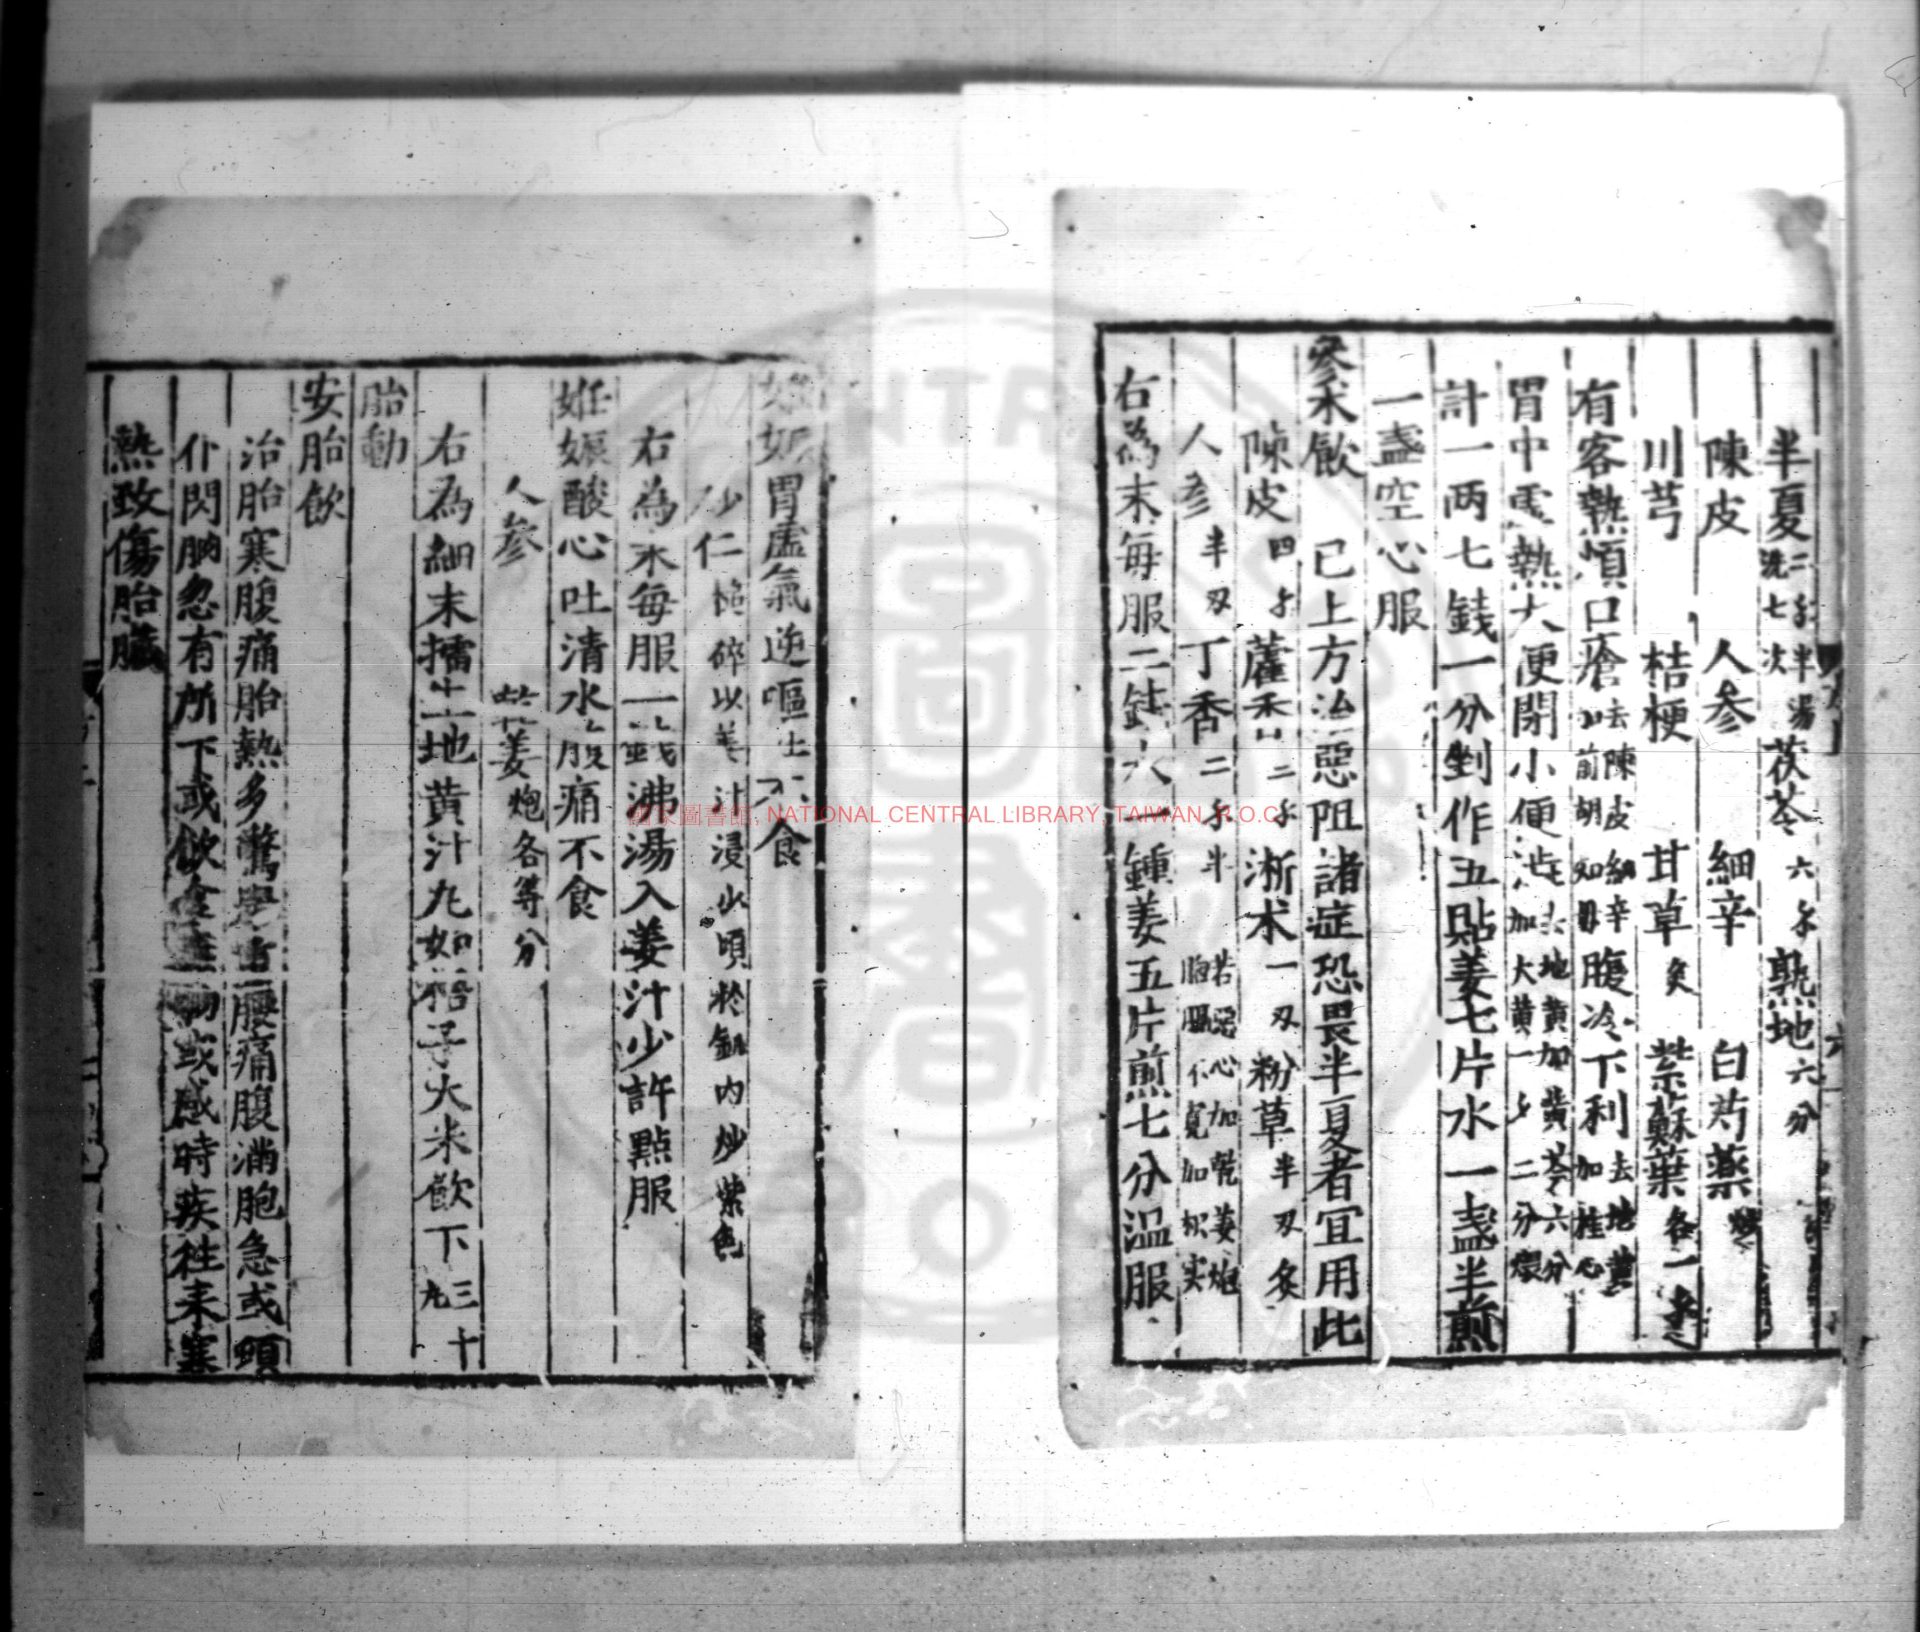 半夏二錢半湯洗七次 茯苓六錢 熟地六分
陳皮 人參 細辛 白芍藥
川芎 桔梗 甘草炙 紫蘇葉各一錢
有客熱煩口瘡去陳皮細辛加前胡知母腹冷下利去地黃加桂心
胃中虛熱大便閉小便澁去地黃加黃芩六分加大黃一錢二分
計一两七錢一分剉作五貼姜七片水一盞半煎
一盞空心服
參朮飲 已上方治惡阻諸症恐畏半夏者宜用此
陳皮四錢 藿香二錢 淅术一刄 粉草半刄炙
人参半刄 丁香二錢半 若惡心加乾姜炮胸膈不寬加枳实
右為末每服二錢水一鍾姜五片煎七分温服
妊娠胃虛氣逆嘔吐不食
砂仁槌碎以姜汁浸少頃於銚内炒紫色
右為末每服一錢沸湯入姜汁少許點服
妊娠酸心吐清水腹痛不食
人參 乾姜炮各等分
右為細末擂生地黃汁丸如梧子大米飲下三十丸
胎動
安胎飲
治胎寒腹痛胎熱多驚舉重腰痛腹滿胞急或頓
仆閃肭忽有所下或飲食毒物或感時疾徃来寒
熱致傷胎臟
國家圖書館, NATIONAL CENTRAL LIBRARY, TAIWAN, R.O.C.